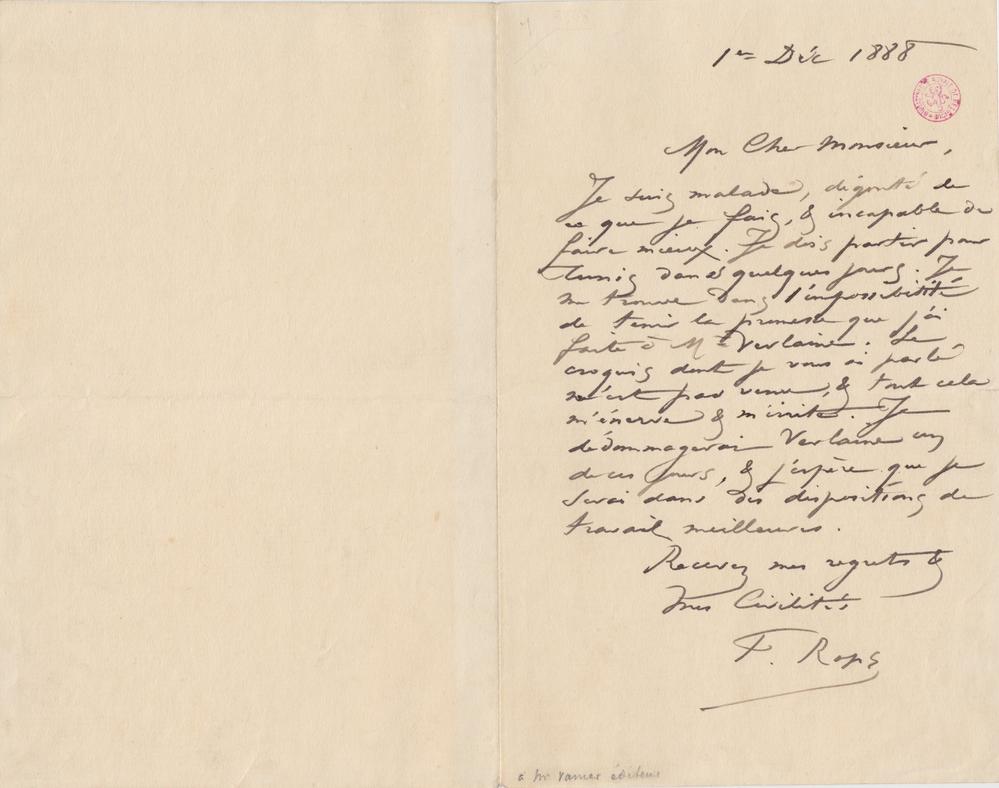 1er Déc 1888
Mon Cher Monsieur,
Je suis malade, dégouté de
ce que je fais, & incapable de
faire mieux. Je dois partir pour
Tunis dans quelques jours. Je
me trouve dans l'impossibilité
de tenir la promesse que j'ai
faite à Mr Verlaine. Le
croquis dont je vous ai parlé
n'est pas venu, & tout cela
m'énerve & m'irrite. Je
dédommagerai Verlaine un
de ces jours, & j'espère que je
serai dans des dispositions de
travail meilleures.
Recevez mes regrets &
mes Civilités
F. Rops
à Mr Vanier éditeur